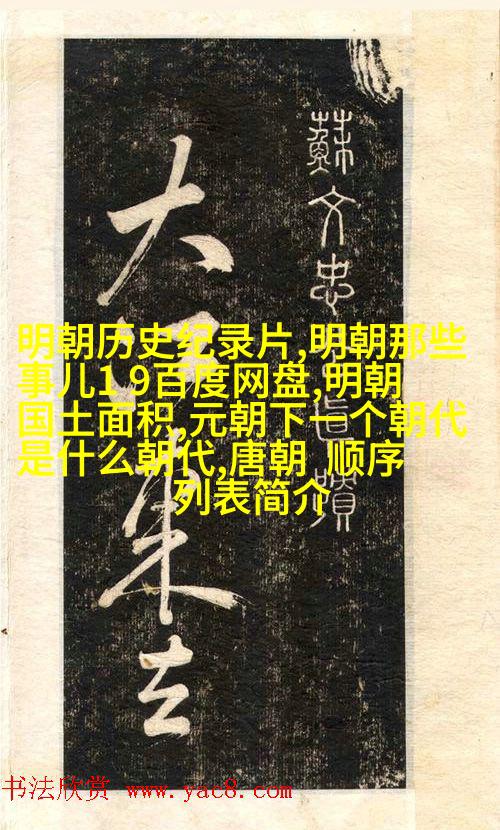 蘇文忠蹟
大東去
明朝历史纪录片,明朝那些
事儿1 9百度网盘,明朝
国土面积,元朝下一个朝代
是什么朝代,唐朝 顺序
列表简介
书法欣赏 www.yac8.com